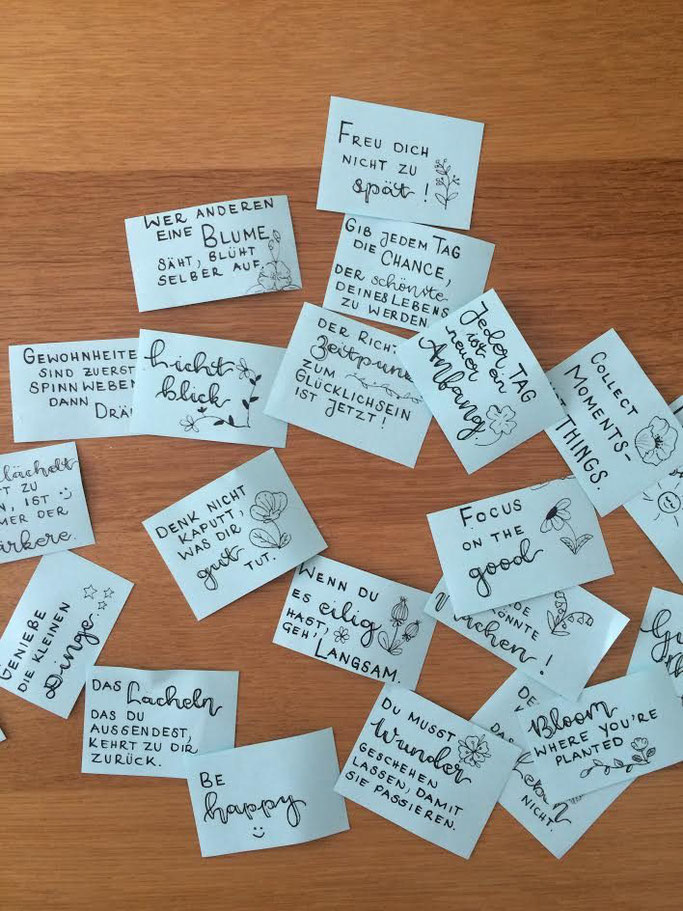 FREU DICH
NICHT ZU
spät!
WER ANDEREN
EINE BLUME
SÄHT, BLÜHT
SELBER AUF.
GIB JEDEM TAG
DIE CHANCE,
DER schönste
DEINES LEBENS
ZU WERDEN
GEWOHNHEITE
SIND ZUERST
SPINNWEBEN
DANN
DRÄ
Licht
blick
DER RICHT
Zeitpunk
ZUM
GLÜCKLICHSEIN
IST JETZT!
Jeder TAG
ist ein
neuer
Anfang
COLLECT
MOMENTS-
THINGS.
lächelt
T ZU
N, IST
MER DER
ärkere.
DENK NICHT
KAPUTT,
WAS DIR
gut TUT.
FOCUS
ON THE
good
WENN DU
ES eilig
HAST,
GEH'
LANGSAM.
DE
ÖNNTE
machen!
GENIEßE
DIE KLEINEN
Dinge
DAS Lächeln
DAS DU
AUSSENDEST,
KEHRT ZU DIR
ZURÜCK.
BE
happy
DU MUSST
Wunder
GESCHEHEN
LASSEN, DAMIT
SIE PASSIEREN.
DE
NICHT.
Bloom
WHERE YOU'RE
PLANTED